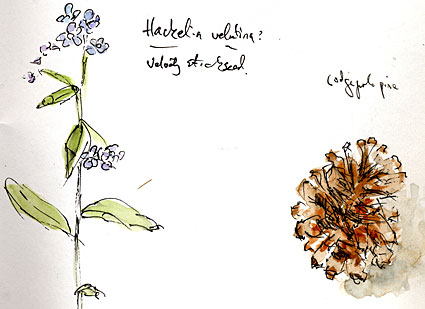 Hackelia velutina?
velvety stickseed.
lodgepole pine